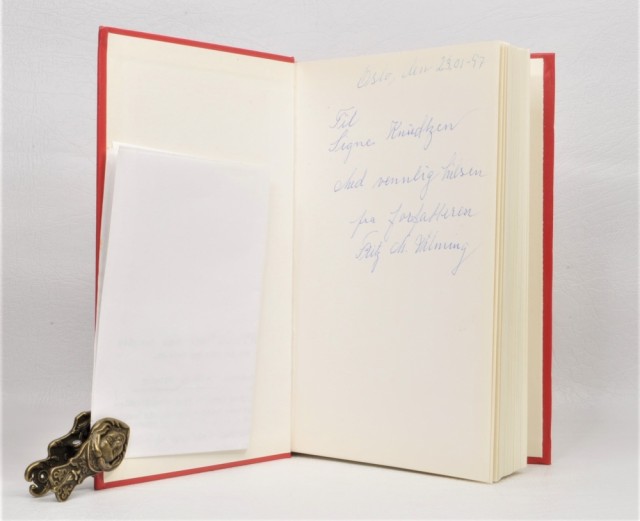 Oslo, den 29.01-97
Til
Signe Knudtzen
Med vennlig hilsen
fra forfatteren
Fritz M. Ulming